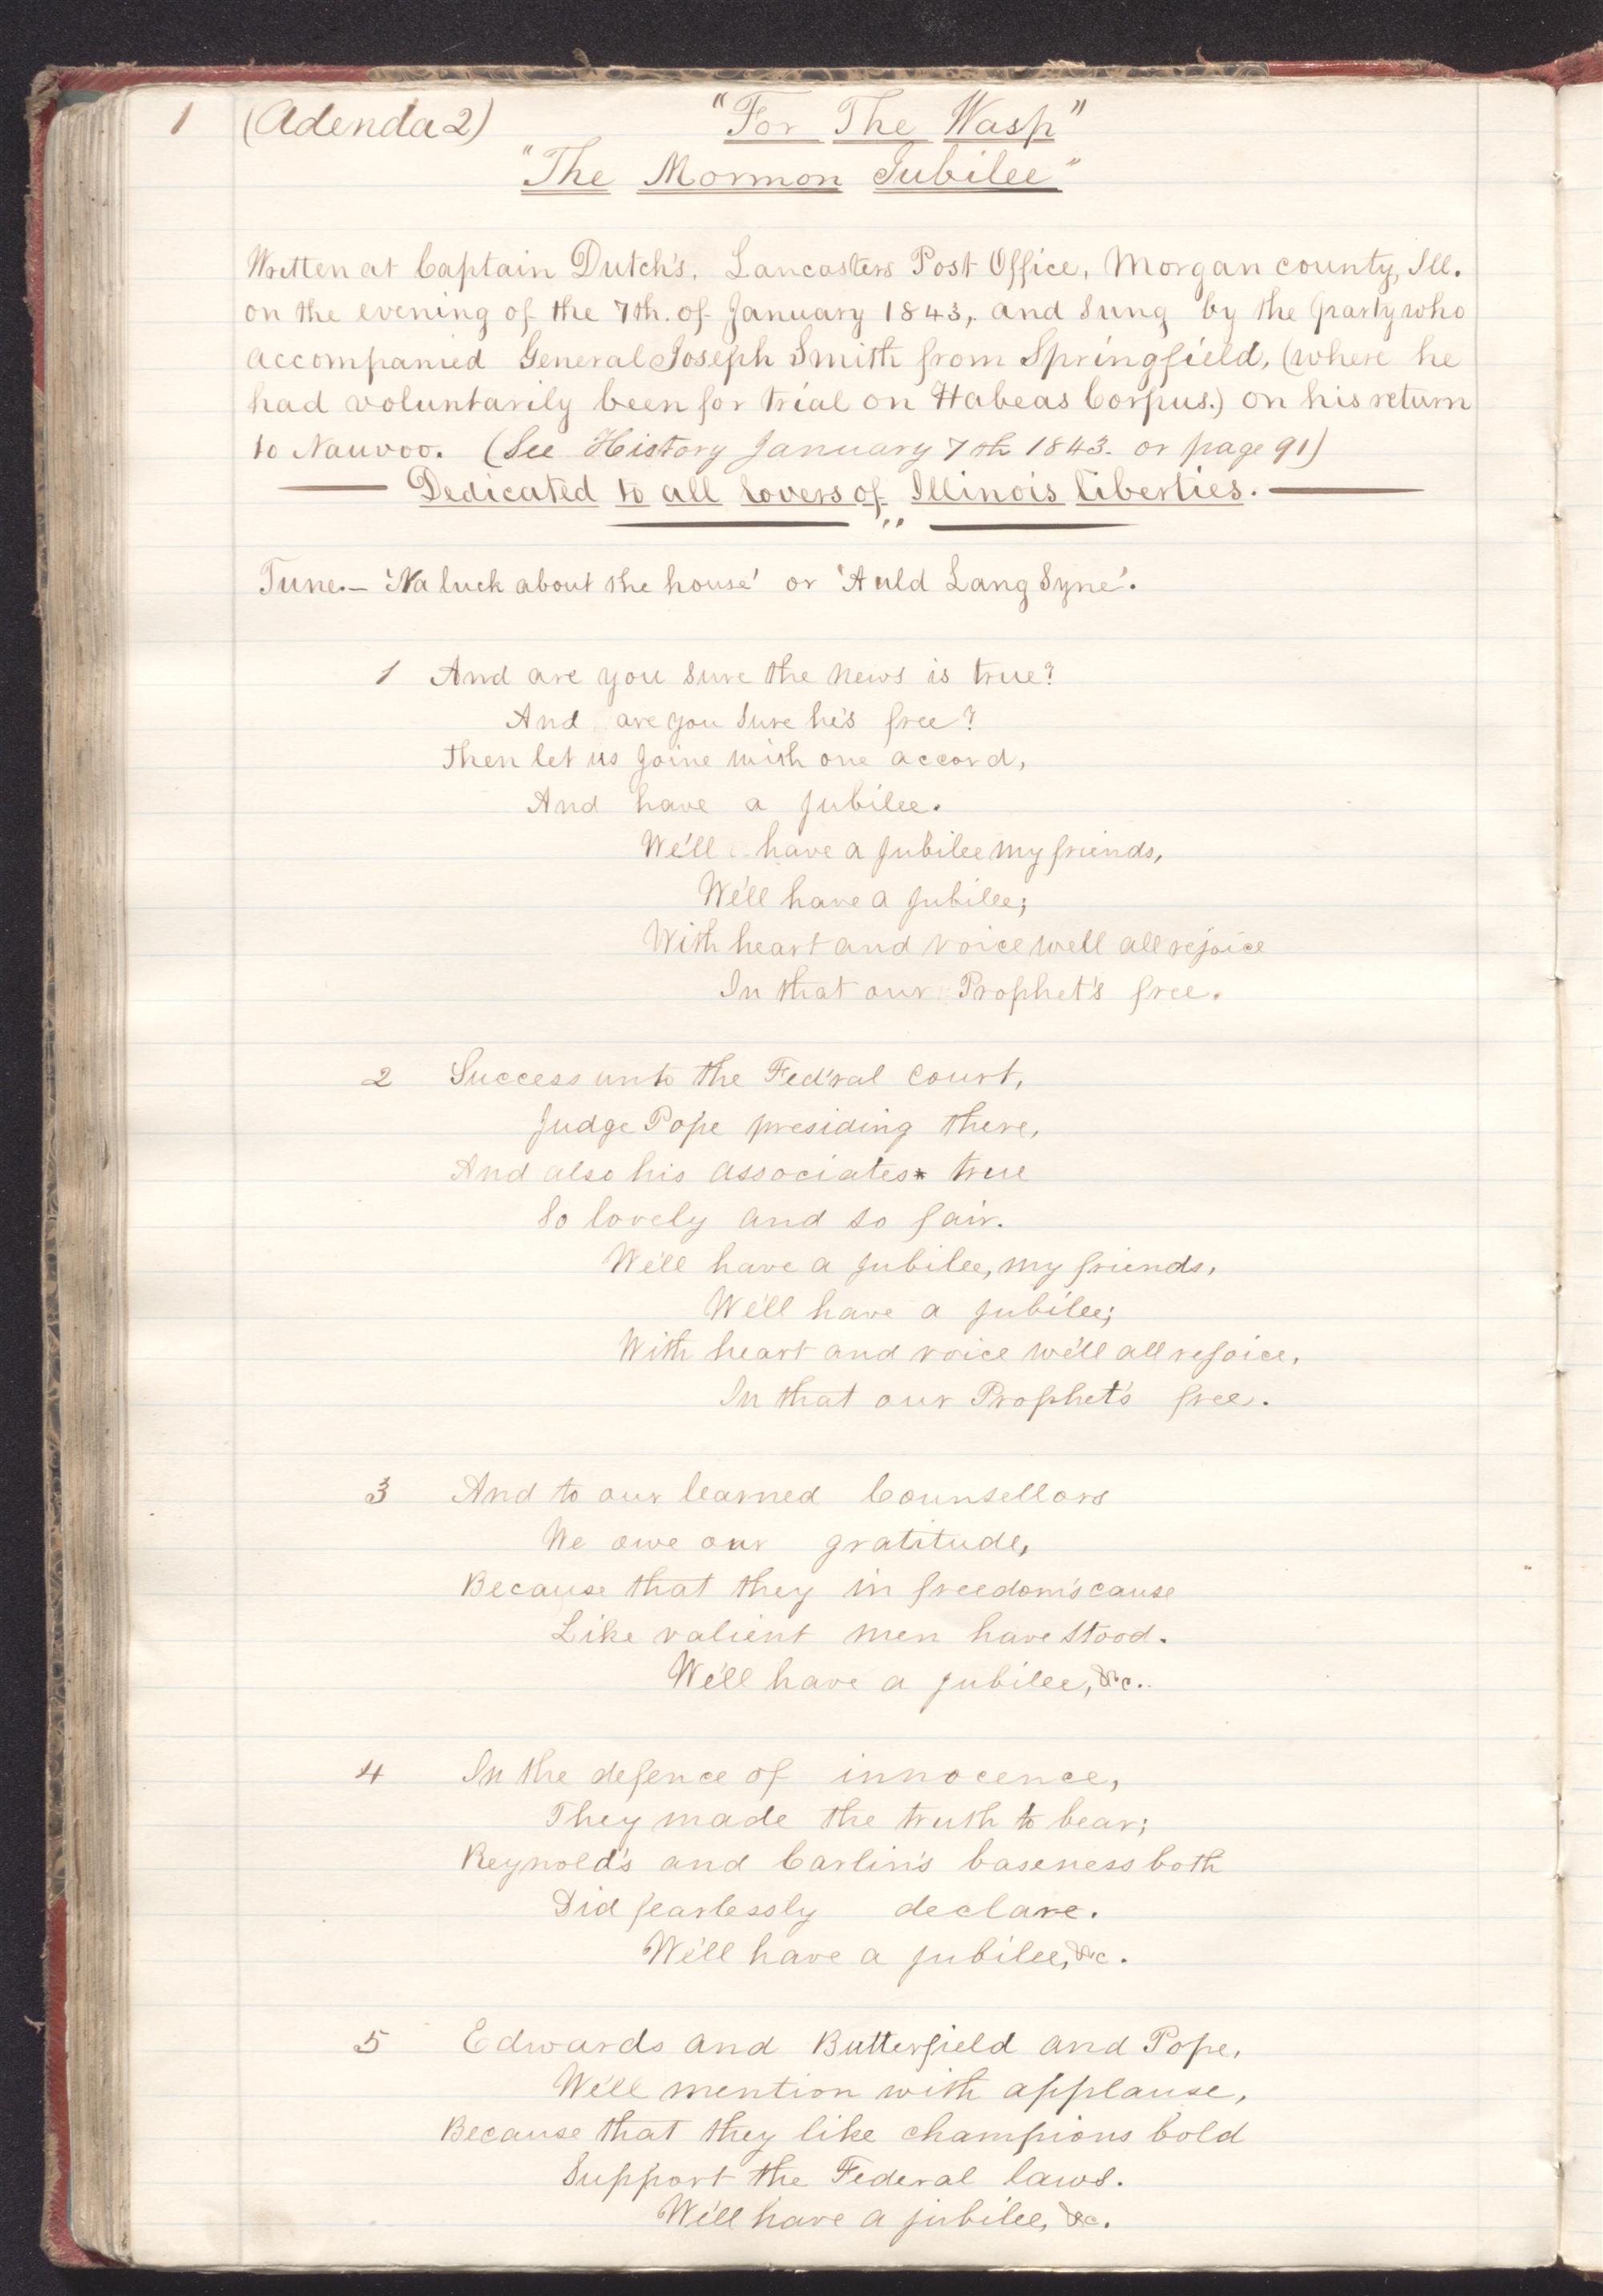 1 (Adenda 2) "For The Wasp"
"The Mormon Jubilee"
Written at Captain Dutch's, Lancasters Post Office, Morgan county, Ill.
on the evening of the 7th. of January 1843, and sung by the party who
accompanied General Joseph Smith from Springfield, (where he
had voluntarily been for trial on Habeas Corpus.) on his return
to Nauvoo. (See History January 7th 1843. or page 91)
Dedicated to all lovers of Illinois liberties.
Tune.— 'Na luck about the house' or 'Auld Lang Syne'.
1 And are you sure the news is true?
And are you sure he's free?
Then let us joine with one accord,
And have a jubilee.
We'll have a jubilee my friends,
We'll have a jubilee;
With heart and voice we'll all rejoice
In that our Prophet's free.
2 Success unto the Fed'ral court,
Judge Pope presiding there,
And also his associates* true
So lovely and so fair.
We'll have a jubilee, my friends,
We'll have a jubilee;
With heart and voice we'll all rejoice,
In that our Prophet's free.
3 And to our learned Counsellors
We owe our gratitude,
Because that they in freedom's cause
Like valient men have stood.
We'll have a jubilee, &c..
4 In the defence of innocence,
They made the truth to bear;
Reynold's and Carlin's baseness both
Did fearlessly declare.
We'll have a jubilee, &c.
5 Edwards and Butterfield and Pope,
We'll mention with applause,
Because that they like champions bold
Support the Federal laws.
We'll have a jubilee, &c.